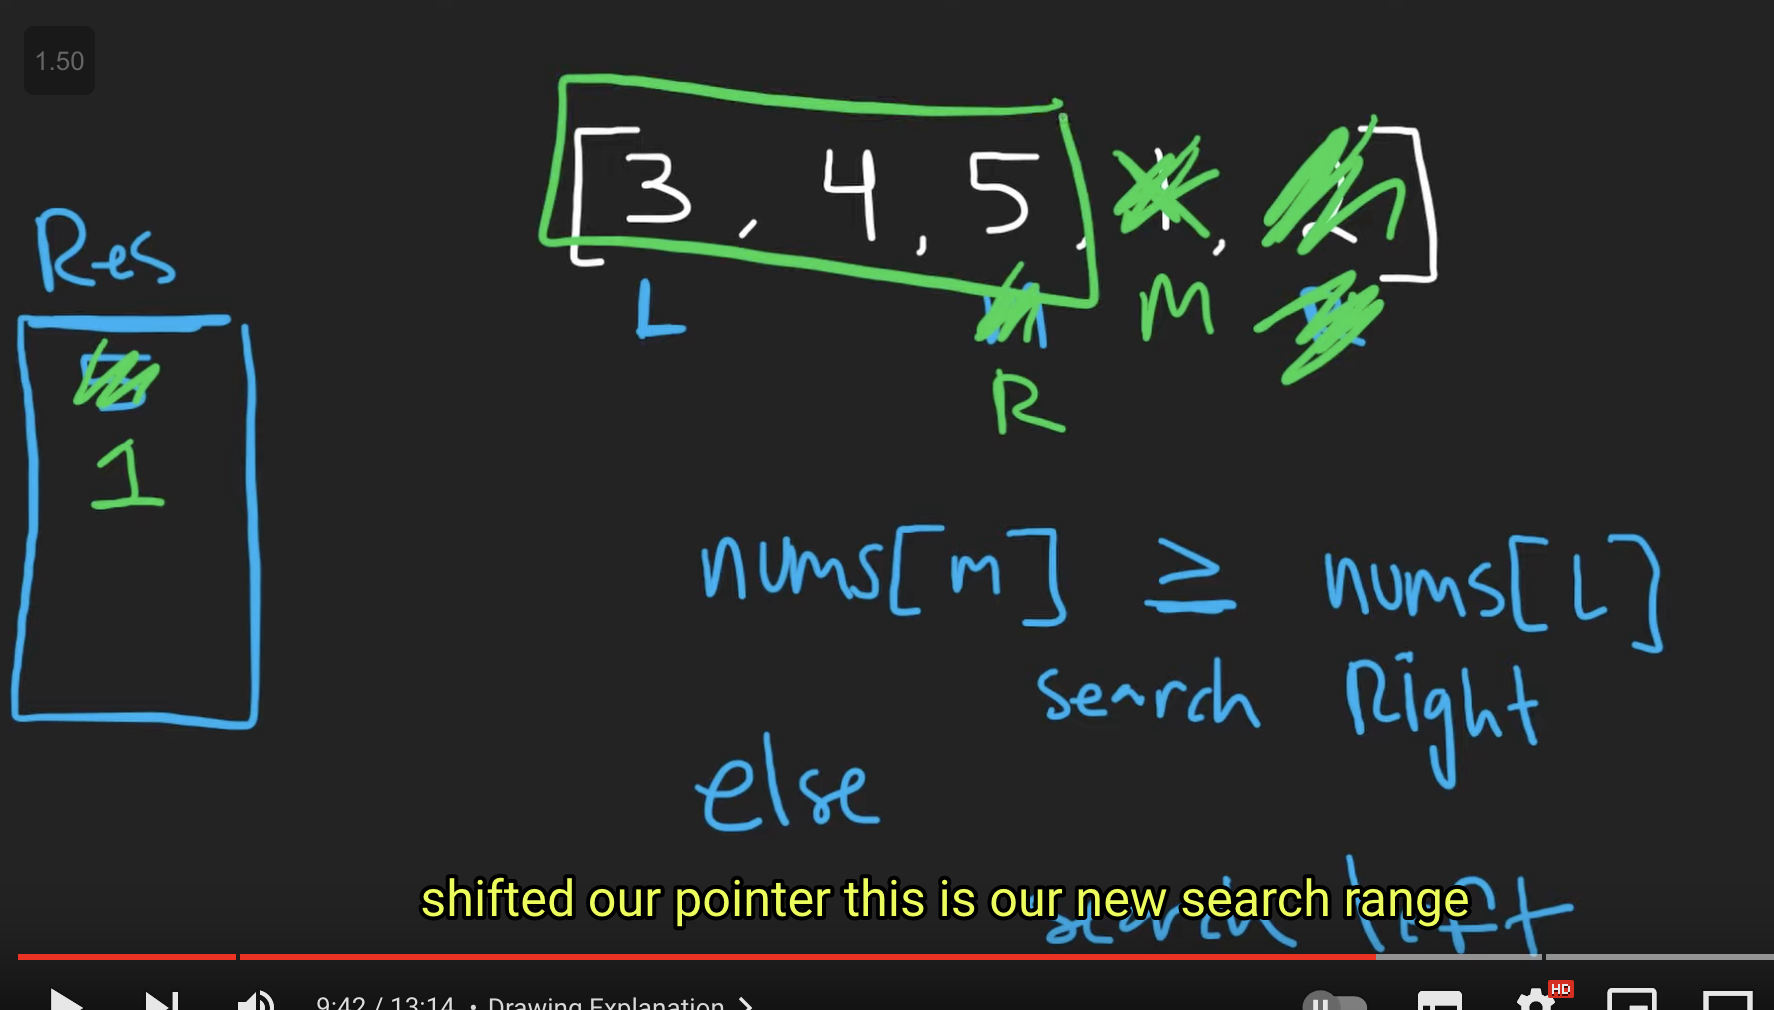 1.50
[3, 4, 5, 1, 2]
L M
R
Res
1
nums[m] ≥ nums[L]
search Right
else
search left
shifted our pointer this is our new search range
9:42 / 13:14 • Drawing Explanation >
HD